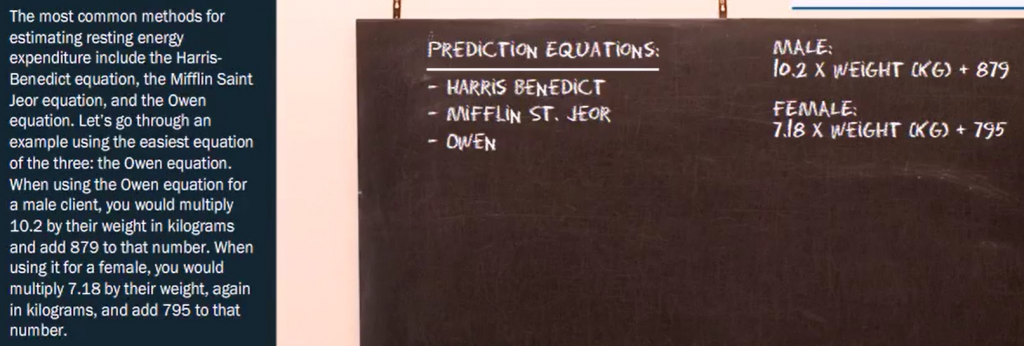 The most common methods for
estimating resting energy
expenditure include the Harris-
Benedict equation, the Mifflin Saint
Jeor equation, and the Owen
equation. Let's go through an
example using the easiest equation
of the three: the Owen equation.
When using the Owen equation for
a male client, you would multiply
10.2 by their weight in kilograms
and add 879 to that number. When
using it for a female, you would
multiply 7.18 by their weight, again
in kilograms, and add 795 to that
number.
PREDICTION EQUATIONS:
- HARRIS BENEDICT
- MIFFLIN ST. JEOR
- OWEN
MALE:
10.2 X WEIGHT (KG) + 879
FEMALE:
7.18 X WEIGHT (KG) + 795